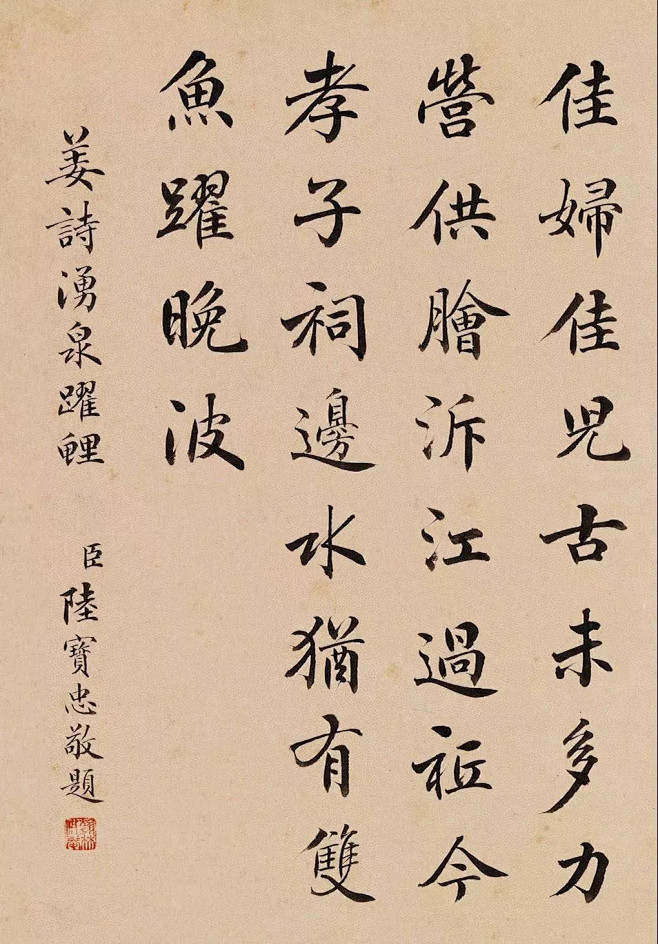 佳婦佳児古未多力
營供膾泝江過祇今
孝子祠邊水猶有雙
魚躍晚波
姜詩湧泉躍鯉
臣陸寶忠敬題